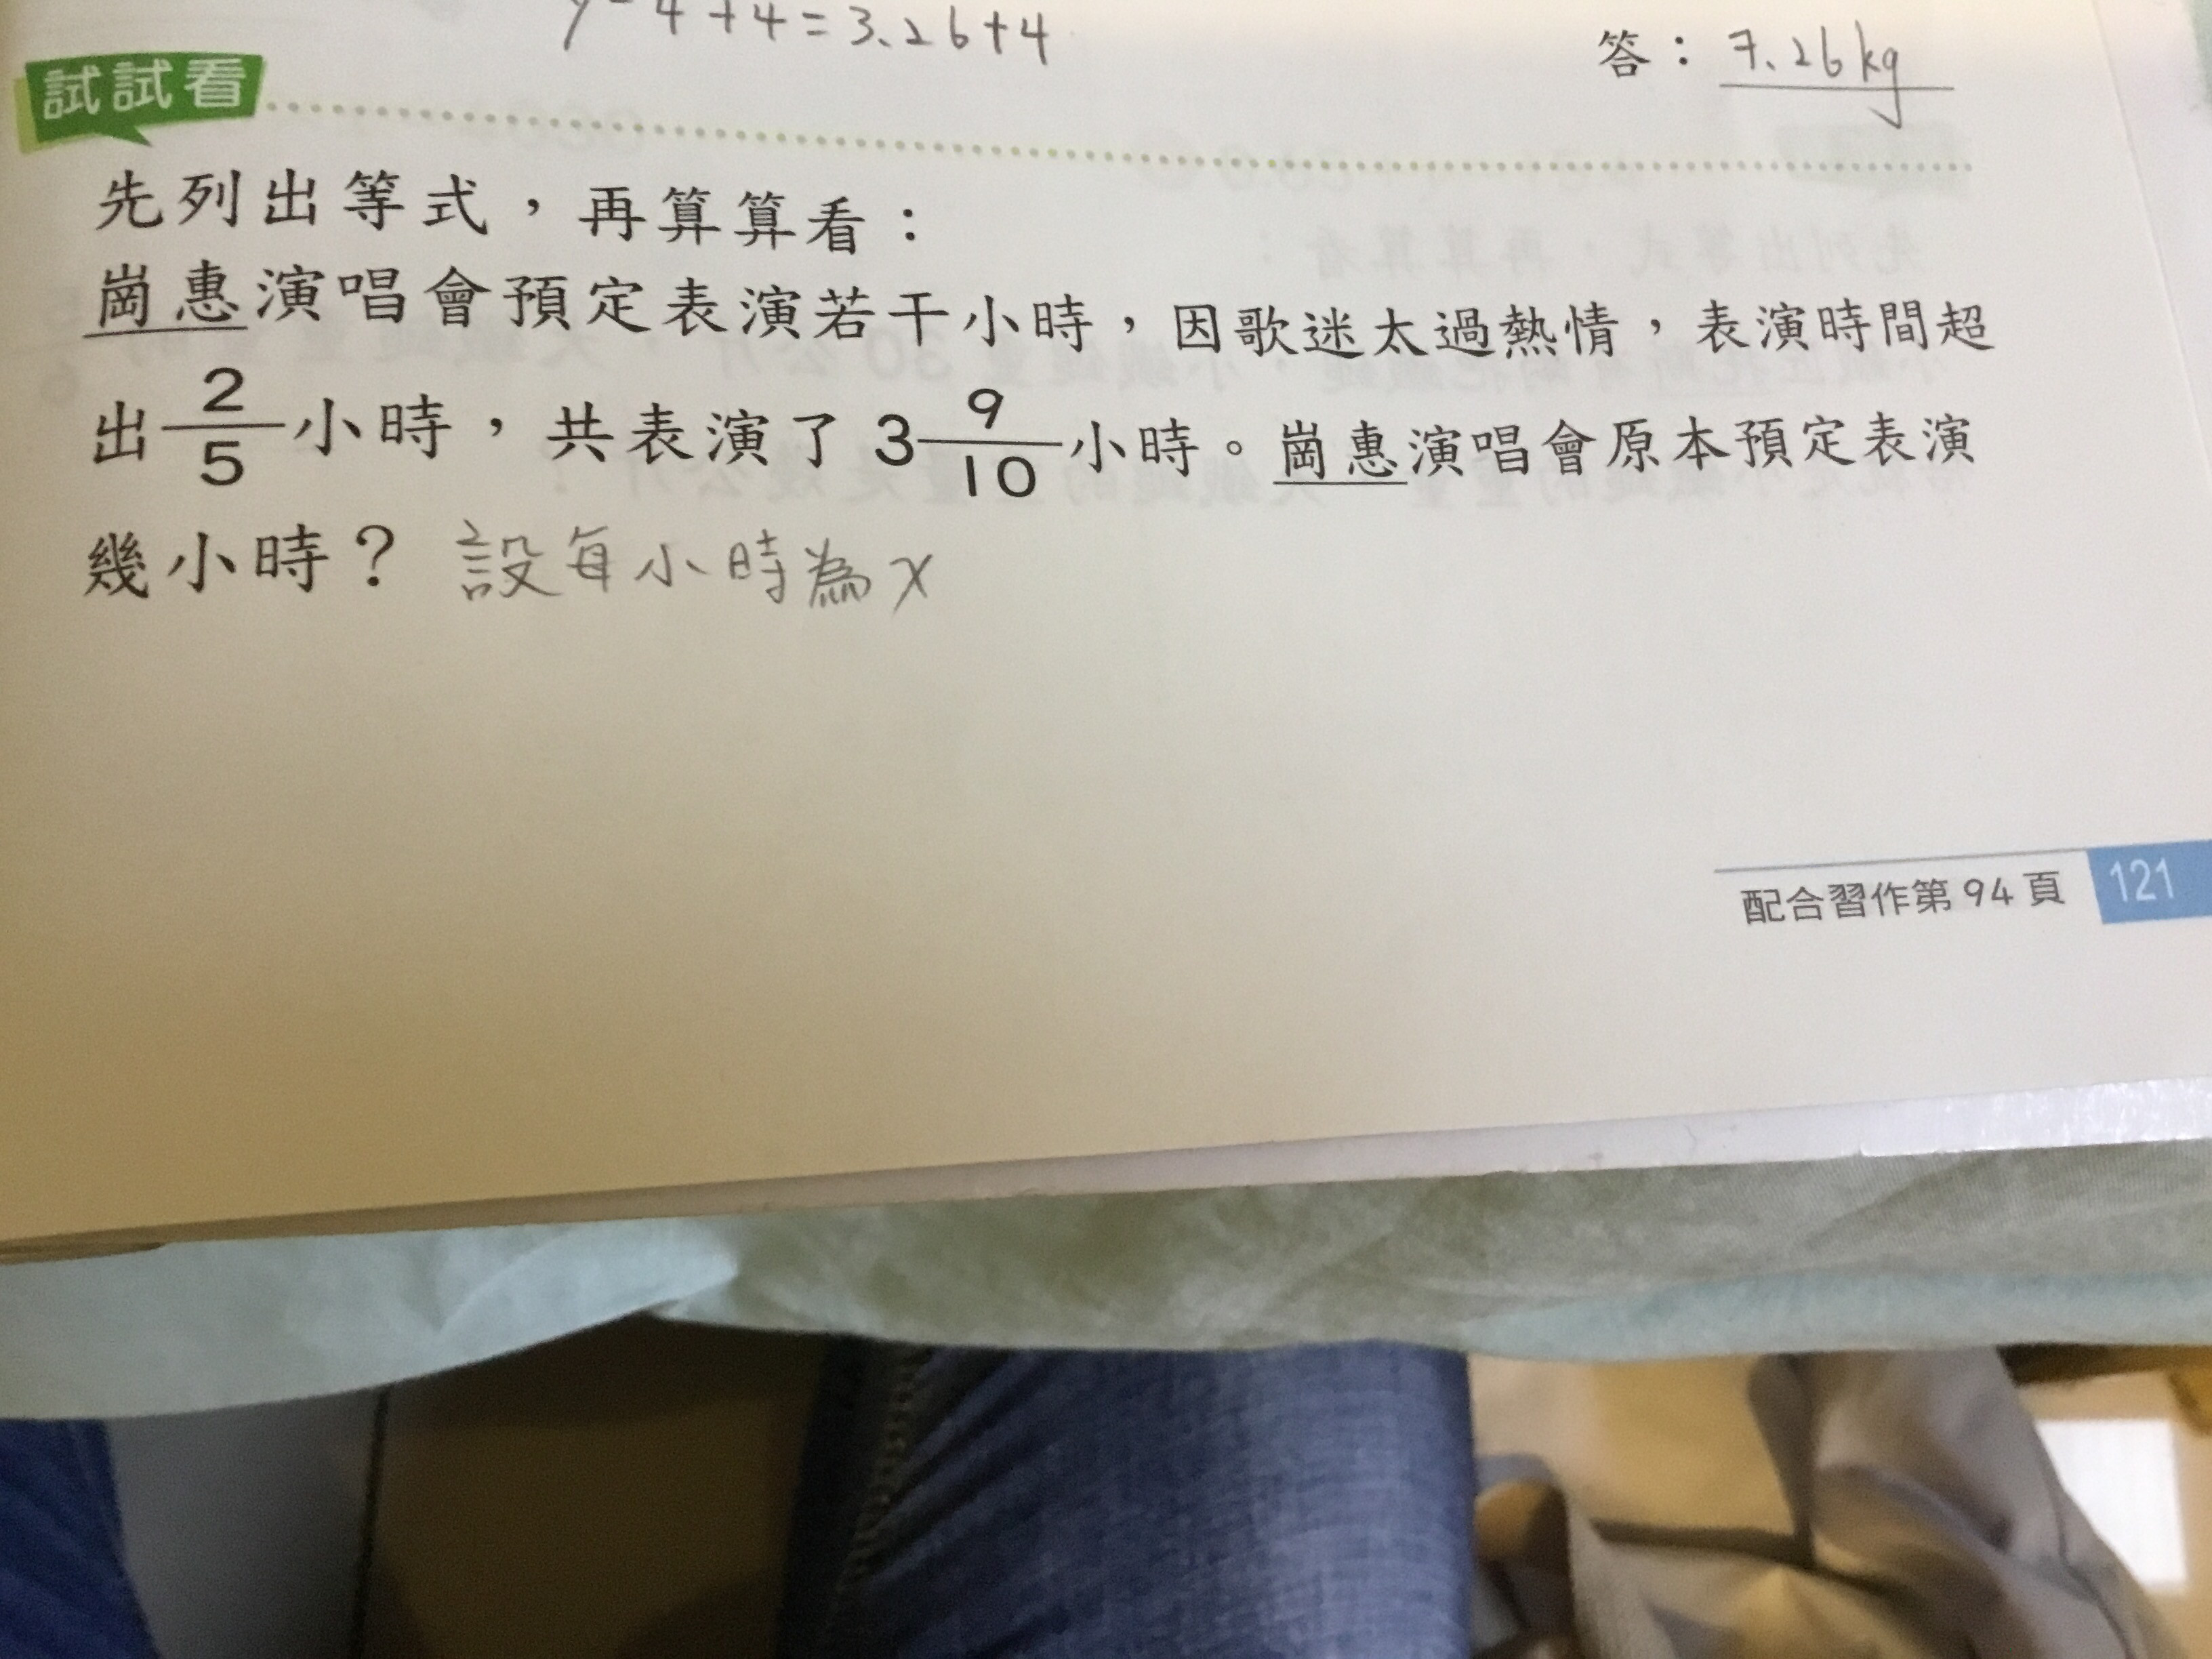 y-4+4=3.26+4
答：7.26kg
試試看
先列出等式，再算算看：
崗惠演唱會預定表演若干小時，因歌迷太過熱情，表演時間超
出2/5小時，共表演了3 9/10小時。崗惠演唱會原本預定表演
幾小時？ 設每小時為x
配合習作第94頁 121